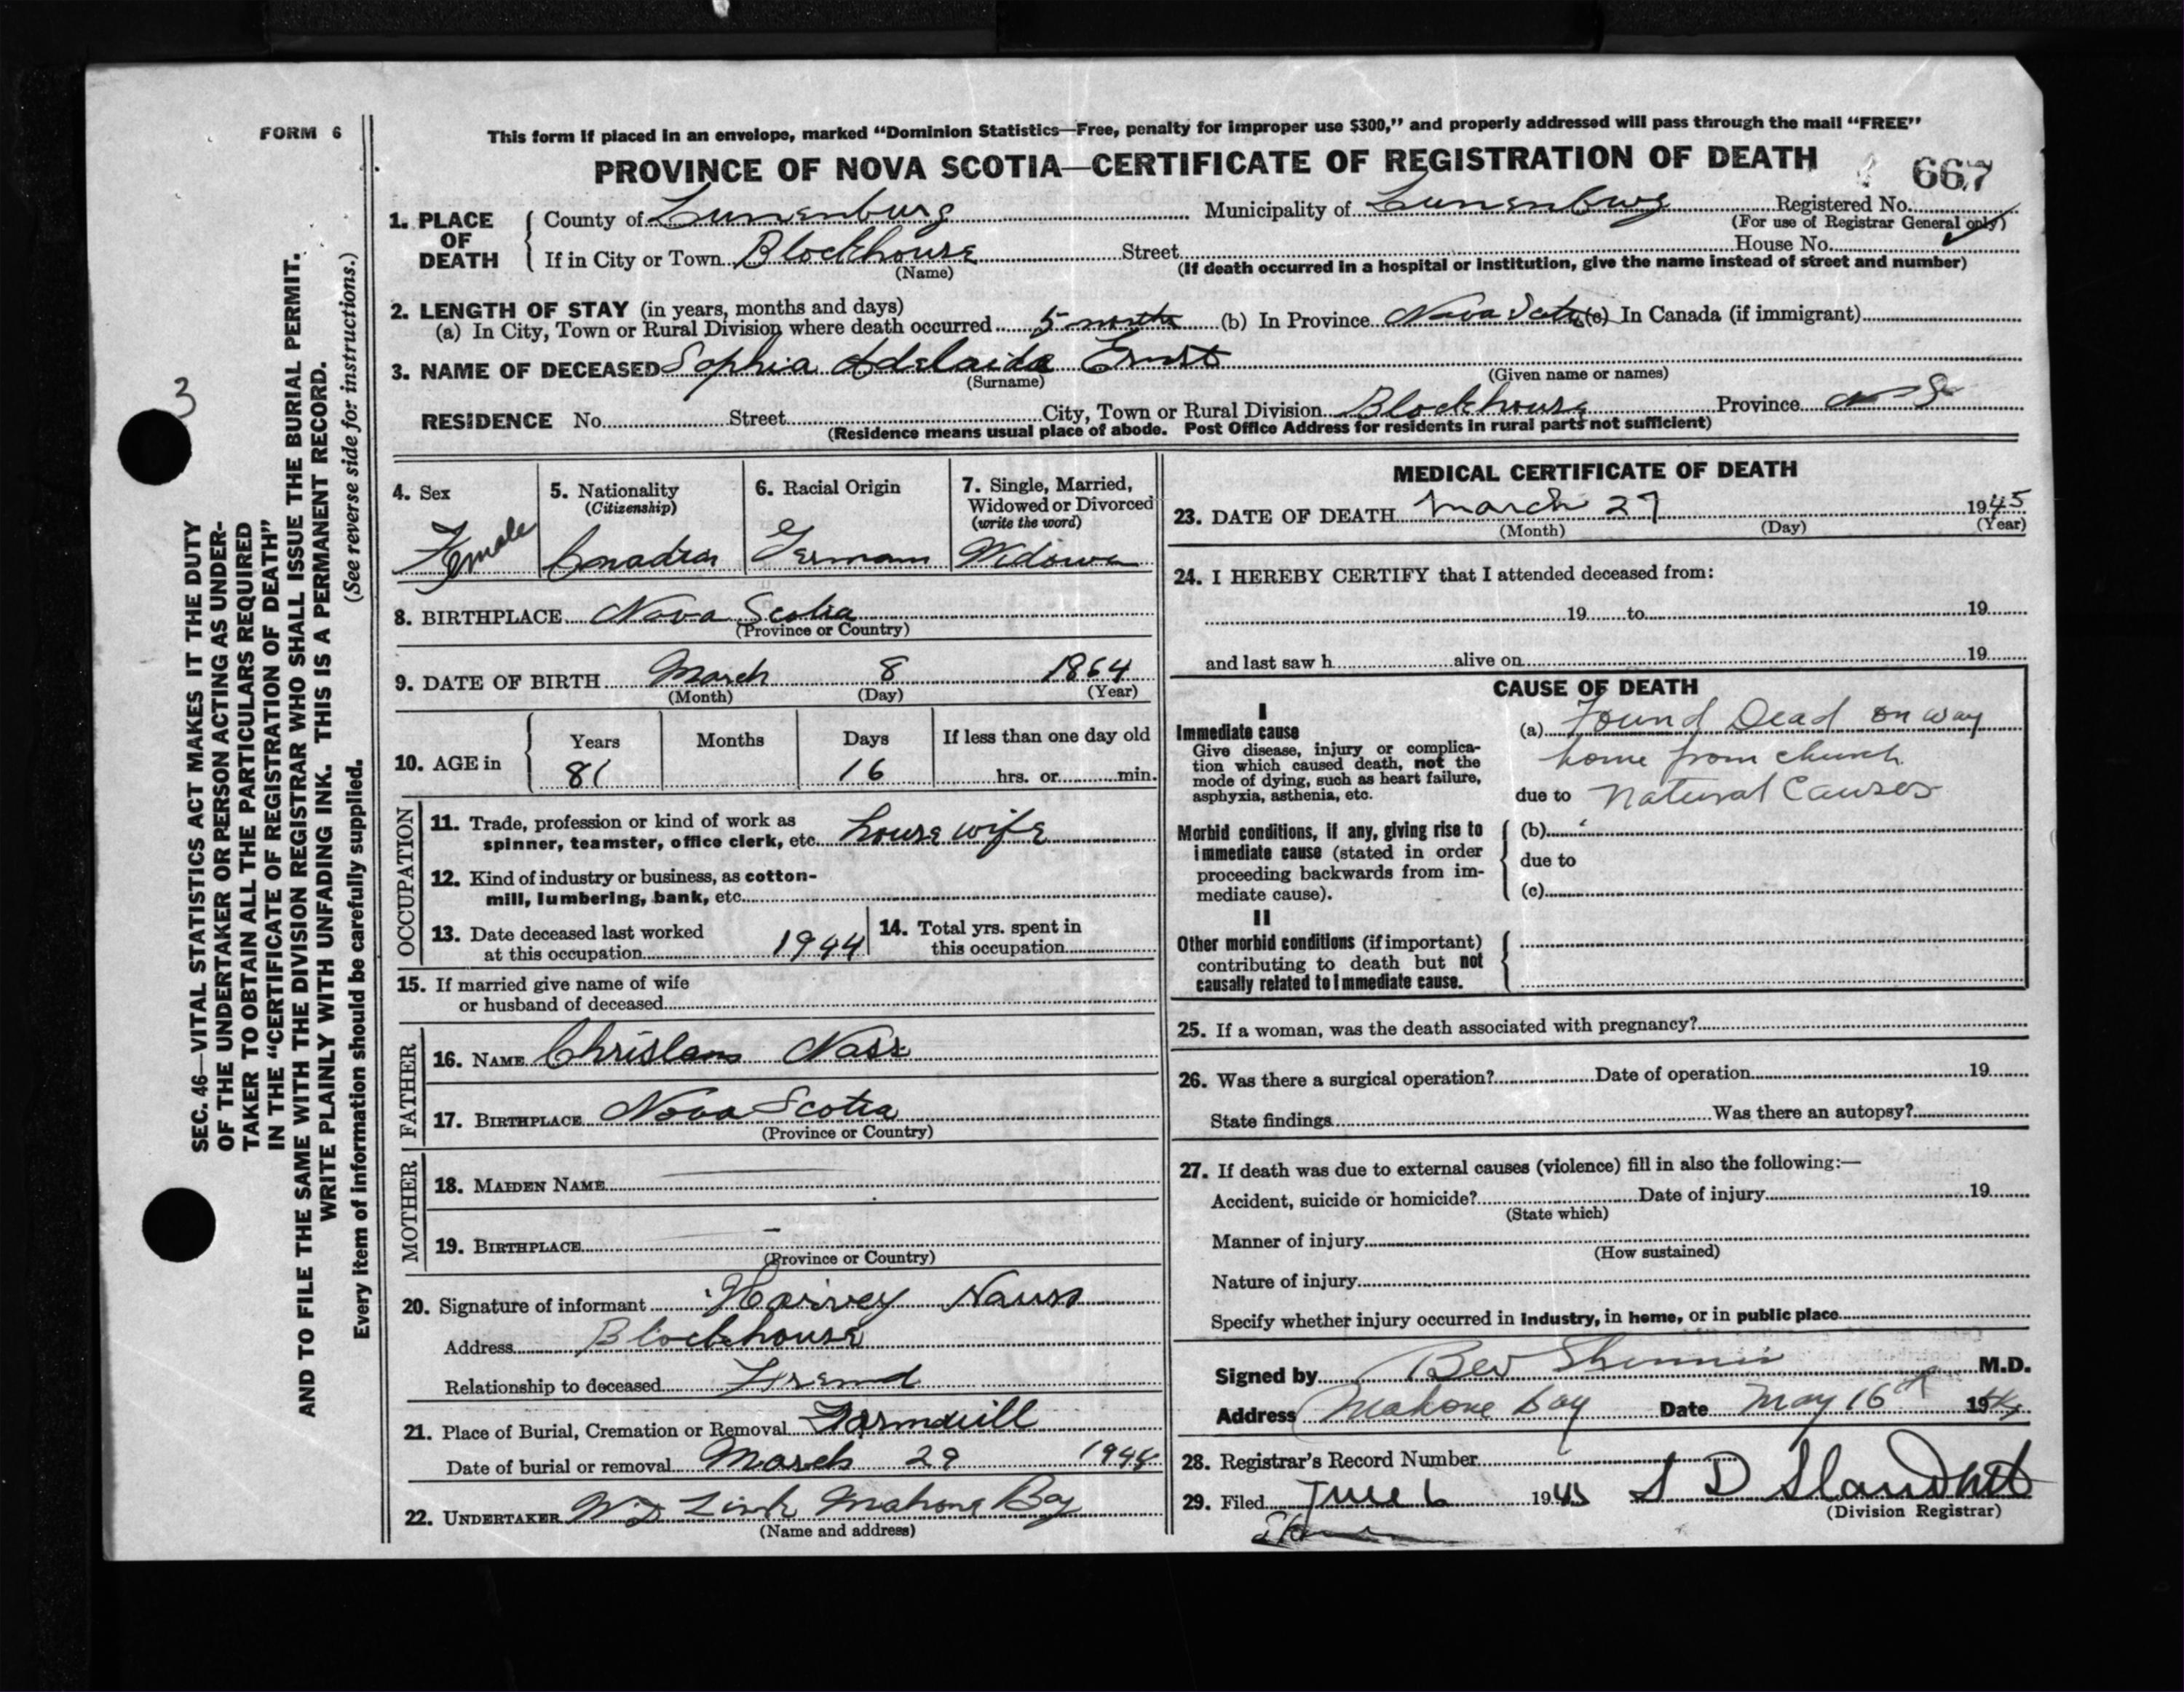 FORM 6
This form if placed in an envelope, marked “Dominion Statistics—Free, penalty for improper use $300,” and properly addressed will pass through the mail “FREE”
PROVINCE OF NOVA SCOTIA—CERTIFICATE OF REGISTRATION OF DEATH
667
1. PLACE OF DEATH
County of Lunenburg Municipality of Lunenburg Registered No.
(For use of Registrar General only)
If in City or Town Blockhouse Street House No.
(Name) (If death occurred in a hospital or institution, give the name instead of street and number)
2. LENGTH OF STAY (in years, months and days)
(a) In City, Town or Rural Division where death occurred 5 months (b) In Province Nova Scotia (c) In Canada (if immigrant)
3. NAME OF DECEASED Sophia Adelaide Ernst
(Surname) (Given name or names)
RESIDENCE No. Street City, Town or Rural Division Blockhouse Province N S
(Residence means usual place of abode. Post Office Address for residents in rural parts not sufficient)
4. Sex
Female
5. Nationality
(Citizenship)
Canadian
6. Racial Origin
German
7. Single, Married,
Widowed or Divorced
(write the word)
Widow
8. BIRTHPLACE Nova Scotia
(Province or Country)
9. DATE OF BIRTH March 8 1864
(Month) (Day) (Year)
10. AGE in
Years Months Days If less than one day old
81 16 hrs. or min.
OCCUPATION
11. Trade, profession or kind of work as
spinner, teamster, office clerk, etc. house wife
12. Kind of industry or business, as cotton-
mill, lumbering, bank, etc.
13. Date deceased last worked
at this occupation 1944
14. Total yrs. spent in
this occupation
15. If married give name of wife
or husband of deceased
FATHER
16. NAME Chrislam Nass
17. BIRTHPLACE Nova Scotia
(Province or Country)
MOTHER
18. MAIDEN NAME
19. BIRTHPLACE –
(Province or Country)
20. Signature of informant Harvey Nauss
Address Blockhouse
Relationship to deceased Friend
21. Place of Burial, Cremation or Removal
Date of burial or removal March 29
22. UNDERTAKER Mahone Bay
(Name and address)
MEDICAL CERTIFICATE OF DEATH
23. DATE OF DEATH March 27 1945
(Month) (Day) (Year)
24. I HEREBY CERTIFY that I attended deceased from:
19 to 19
and last saw h alive on 19
CAUSE OF DEATH
I
Immediate cause
Give disease, injury or complica-
tion which caused death, not the
mode of dying, such as heart failure,
asphyxia, asthenia, etc.
(a) Found Dead on way
home from church
due to Natural Causes
Morbid conditions, if any, giving rise to
immediate cause (stated in order
proceeding backwards from im-
mediate cause).
(b)
due to
(c)
II
Other morbid conditions (if important)
contributing to death but not
causally related to immediate cause.
25. If a woman, was the death associated with pregnancy?
26. Was there a surgical operation? Date of operation 19
State findings Was there an autopsy?
27. If death was due to external causes (violence) fill in also the following:—
Accident, suicide or homicide? Date of injury 19
(State which)
Manner of injury
(How sustained)
Nature of injury
Specify whether injury occurred in industry, in home, or in public place
Signed by Bev M.D.
Address Mahone Bay Date May 16th
28. Registrar's Record Number
29. Filed June 6 1945 S D
(Division Registrar)
3
SEC. 46—VITAL STATISTICS ACT MAKES IT THE DUTY
OF THE UNDERTAKER OR PERSON ACTING AS UNDER-
TAKER TO OBTAIN ALL THE PARTICULARS REQUIRED
IN THE “CERTIFICATE OF REGISTRATION OF DEATH”
AND TO FILE THE SAME WITH THE DIVISION REGISTRAR WHO SHALL ISSUE THE BURIAL PERMIT.
WRITE PLAINLY WITH UNFADING INK. THIS IS A PERMANENT RECORD.
(See reverse side for instructions.)
Every item of information should be carefully supplied.